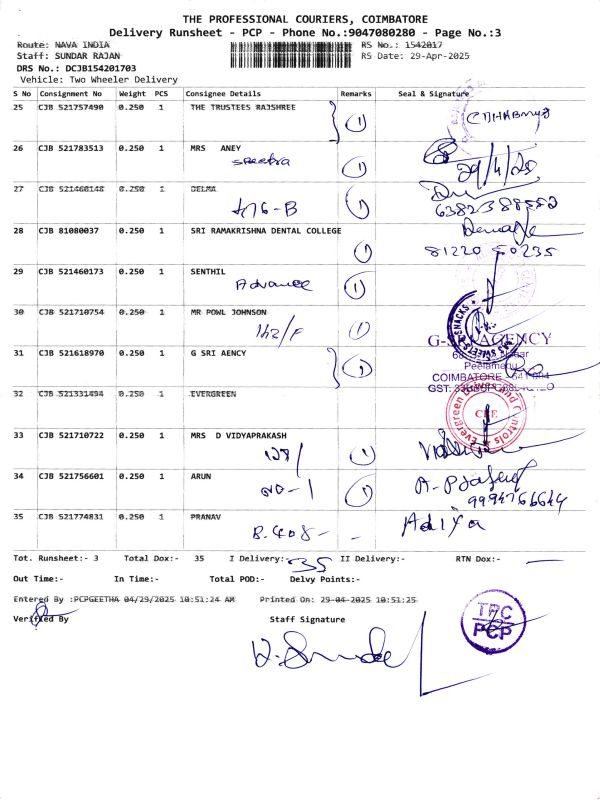 THE PROFESSIONAL COURIERS, COIMBATORE
Delivery Runsheet - PCP - Phone No.:9047080280 - Page No.:3
Route: NAVA INDIA RS No.: 1542017
Staff: SUNDAR RAJAN RS Date: 29-Apr-2025
DRS No.: DCJB154201703
Vehicle: Two Wheeler Delivery
S No Consignment No Weight PCS Consignee Details Remarks Seal & Signature
25 CJB 521757490 0.250 1 THE TRUSTEES RAJSHREE
1
26 CJB 521783513 0.250 1 MRS ANEY
1 29/4/25
27 CJB 521460148 0.250 1 DELMA
476-B 1 63823 88552
28 CJB 81080037 0.250 1 SRI RAMAKRISHNA DENTAL COLLEGE
1 81220 50235
29 CJB 521460173 0.250 1 SENTHIL
Advance 1
30 CJB 521710754 0.250 1 MR POWL JOHNSON
142/F 1
SNACKS
G-SRI AGENCY
31 CJB 521618970 0.250 1 G SRI AENCY
1
Peelamedu
COIMBATORE - 641 004
GST:
32 CJB 521331494 0.250 1 EVERGREEN
Evergreen Drives and Controls
CBE
33 CJB 521710722 0.250 1 MRS D VIDYAPRAKASH
128/ 1
34 CJB 521756601 0.250 1 ARUN
NO-1 1 9994766644
35 CJB 521774831 0.250 1 PRANAV
B.408 - - Adiya
Tot. Runsheet:- 3 Total Dox:- 35 I Delivery:- 35 II Delivery:- RTN Dox:-
Out Time:- In Time:- Total POD:- Delvy Points:-
Entered By :PCPGEETHA 04/29/2025 10:51:24 AM Printed On: 29-04-2025 10:51:25
Verified By Staff Signature
TPC
PCP